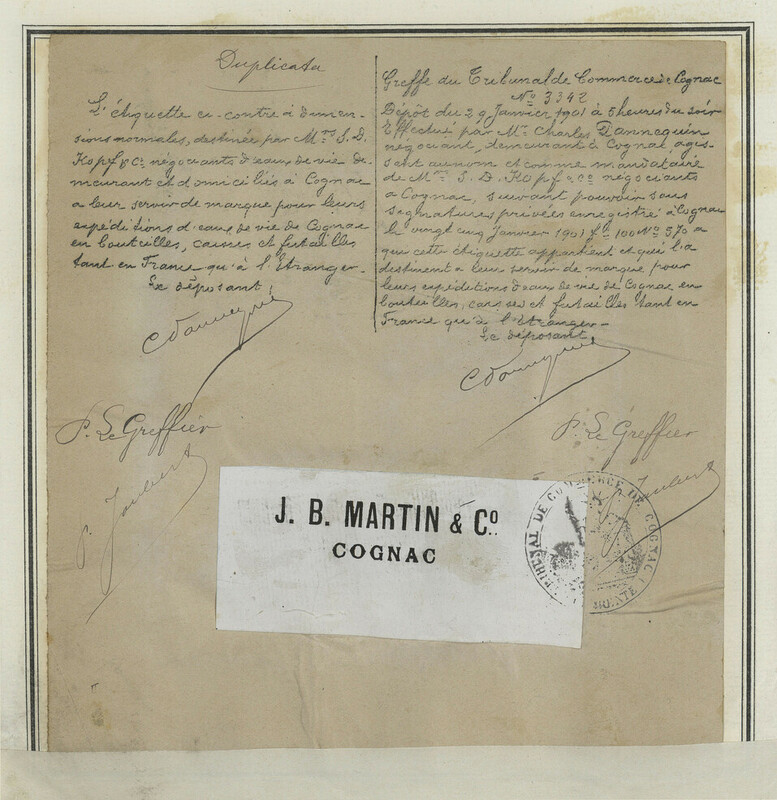 Duplicata
L'étiquette ci-contre à dimen-
sions normales, destinée par Mrs J. D.
Kopf & Co négociants d'eaux de vie de-
meurant et domiciliés à Cognac
a leur servir de marque pour leurs
expéditions d'eaux de vie de Cognac
en bouteilles, caisses et futailles
tant en France qu'à l'Etranger-
Le déposant,
C Dannequin
P. Le Greffier
P. Joubert
Greffe du Tribunal de Commerce de Cognac
No 3342
Dépôt du 29 Janvier 1901 à 5 heures du soir
Effectué par Mr Charles Dannequin
négociant, demeurant à Cognac, agis-
sant au nom et comme mandataire
de Mrs J. D. Kopf & Co négociants
a Cognac, suivant pouvoir sous
signatures privées enregistré à Cognac
le vingt cinq Janvier 1901 fo 100 No 570 a
qui cette étiquette appartient et qui l'a
destinent a leur servir de marque pour
leurs expéditions d'eaux de vie de Cognac en
bouteilles, caisses et futailles tant en
France qu'à l'étranger-
Le déposant,
C Dannequin
P. Le Greffier
Joubert
J. B. MARTIN & Co.
COGNAC
TRIBUNAL DE COMMERCE DE COGNAC